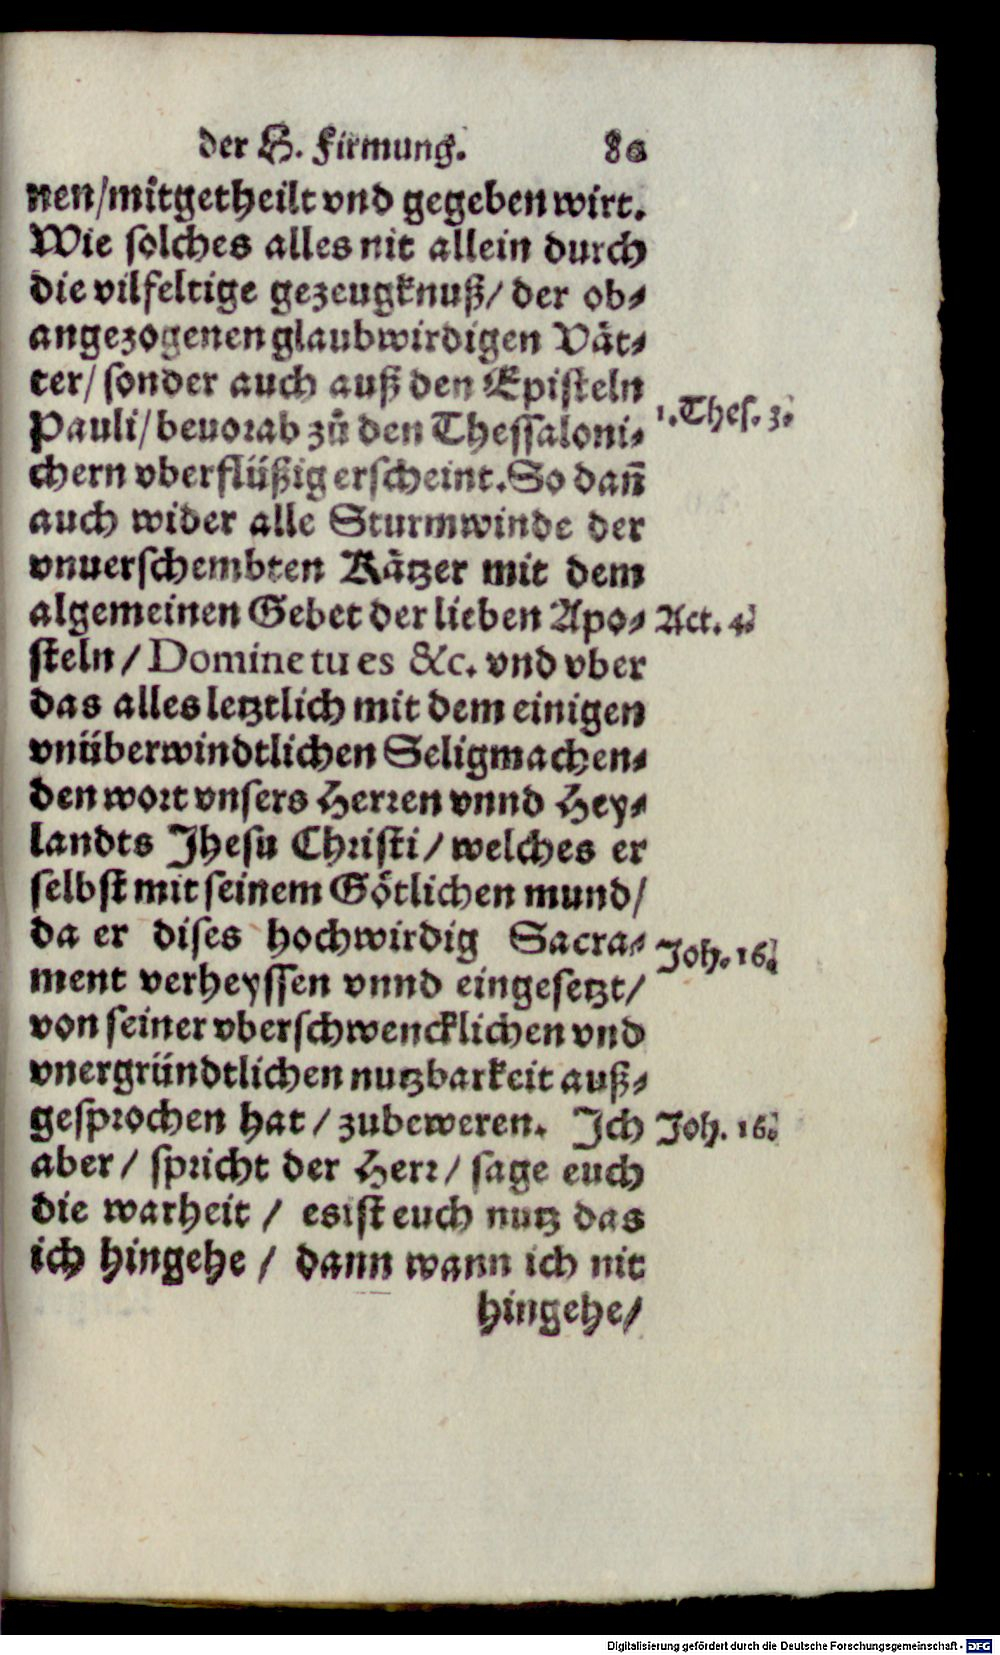 der H. Firmung. 80
nen/mitgetheilt vnd gegeben wirt.
Wie solches alles nit allein durch
die vilfeltige gezeugknuß/ der ob⸗
angezogenen glaubwirdigen Våt⸗
ter/ sonder auch auß den Episteln
1. Thes. 3.
Pauli/ beuorab zů den Thessaloni⸗
chern vberflüßig erscheint. So dañ
auch wider alle Sturmwinde der
vnuerschembten Kåtzer mit dem
algemeinen Gebet der lieben Apo⸗
Act. 4.
steln / Domine tu es &c. vnd vber
das alles letztlich mit dem einigen
vnüberwindtlichen Seligmachen⸗
den wort vnsers Herren vnnd Hey⸗
landts Jhesu Christi / welches er
selbst mit seinem Götlichen mund/
da er dises hochwirdig Sacra⸗
Joh. 16.
ment verheyssen vnnd eingesetzt/
von seiner vberschwencklichen vnd
vnergründtlichen nutzbarkeit auß⸗
gesprochen hat / zubeweren. Ich
Joh. 16.
aber / spricht der Herr / sage euch
die warheit / es ist euch nutz das
ich hingehe / dann wann ich nit
hingehe/
Digitalisierung gefördert durch die Deutsche Forschungsgemeinschaft - DFG